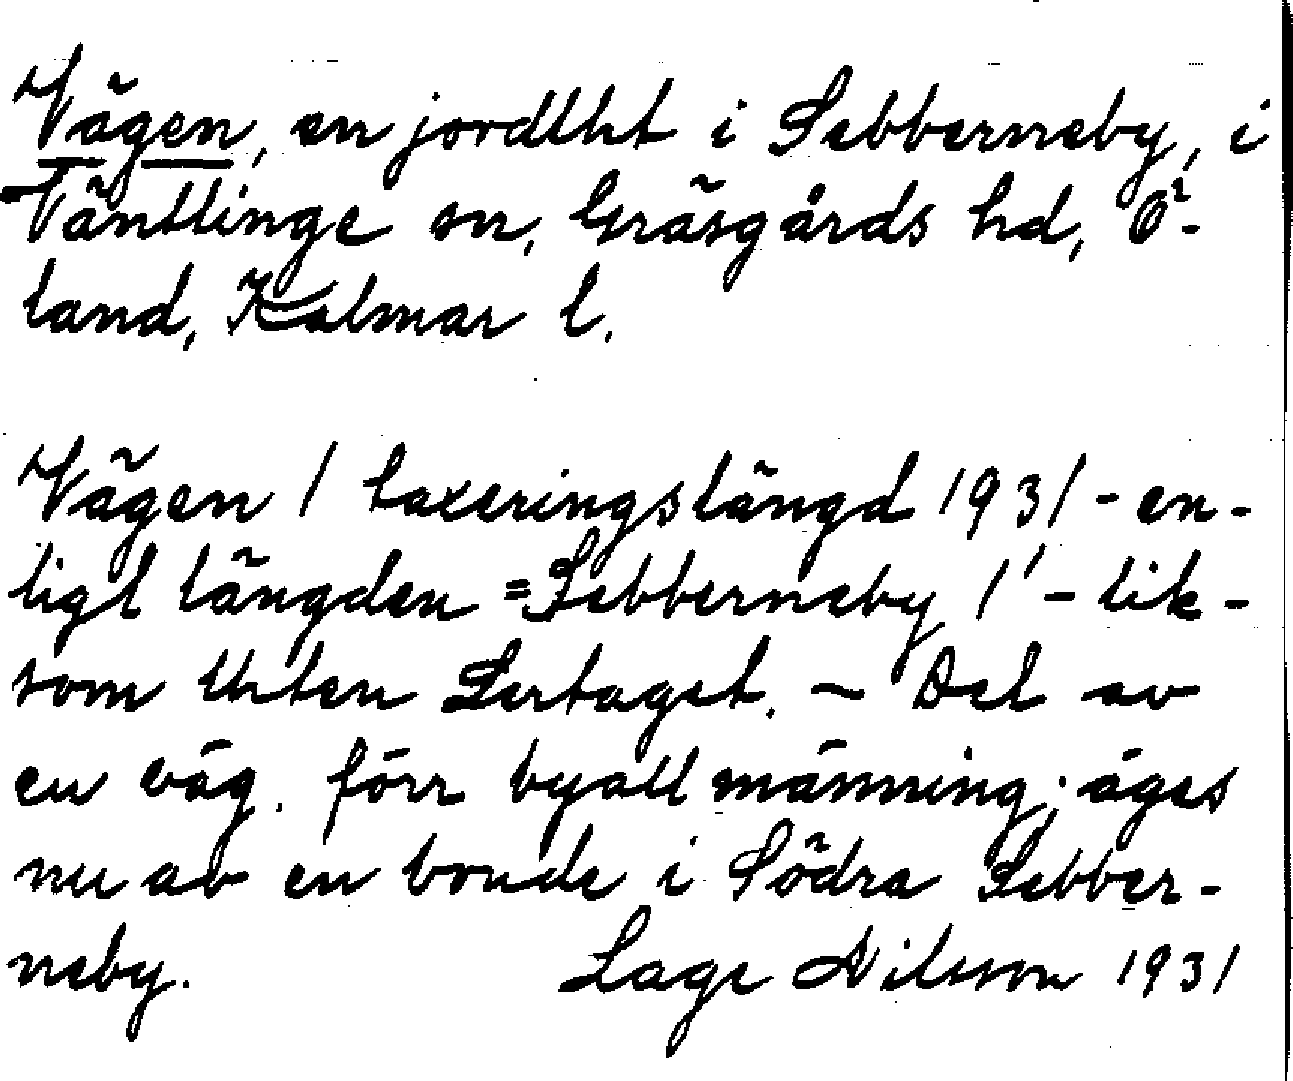 Vägen, en jordlht i Sebberneby, i
Väntlinge sn, Gräsgårds hd, Ö-
land, Kalmar l.
Vägen 1 taxeringslängd 1931 - en-
ligt längden = Sebberneby 1' - lik-
som lhten Lertaget. – Del av
en väg. förr byallmänning; äges
nu av en bonde i Södra Sebber-
neby. Lage Nilsson 1931